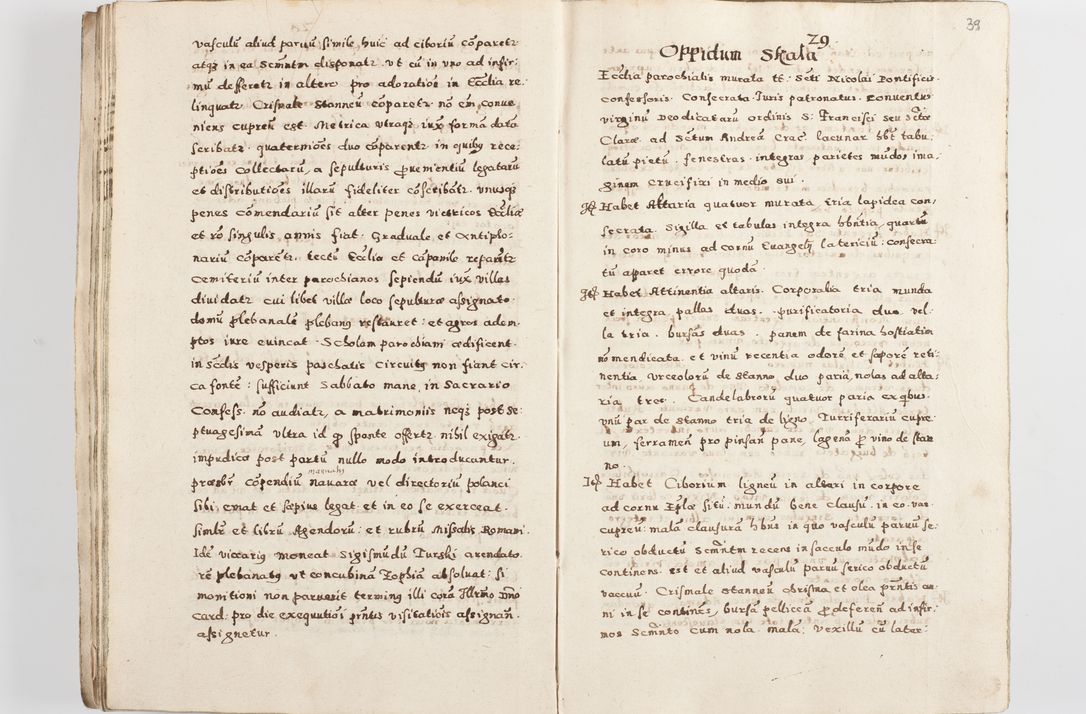 vasculũ aliud parvũ simile huic ad ciboriũ cõparetr
atqȝ in ea Scrmntm disponatr. vt cũ in vno ad infir:
mũ defferetr in altero pro adoratiõe in Ecclia re:
linquatr Crismale Stanneũ cõparetr nõ em̃ conue
niens cupreũ est. Metrica vtraqȝ iux formã datã
scribatr. quaterniões duo cõparentr in quibȝ rece:
ptiões Collectarũ, a sepulturis ꝓuenientiũ legatarũ
et distributiões illarũ fideliter cõscribãtr. vnusqȝ
penes cõmendariũ sit alter penes victricos Eccliæ
et rõ singulis annis fiat. Graduale, et Antipho:
nariũ cõparetr. tectũ Eccliæ et cãpanile reparetr
Cemiteriũ inter parochianos sepiendũ iux villas
diuidatr cui libet villæ loco sepulturæ assignato.
domũ plebanalẽ plebanȝ restauret: et agros adem
ptos iure euincat. Scholam parochiani ædificent.
in Scdis vesperis paschatis Circuitȝ non fiant cir
ca fontẽ: sufficiunt Sabbato mane, in Sacrario
Confess. nõ audiatr, a matrimoniis neqȝ post Se:
ptuagesimã vltra id ꝙ sponte offertr nihil exigatr.
impudicæ post partũ nullo modo introducantur.
manualȝ
præsbr cõpendiũ nauaræ vel directoriũ polanci
sibi emat et sæpius legat et in eo se exerceat.
simlr et librũ Agendorũ: et rubrũ Missalis Romani.
Idẽ vicariȝ moneat Sigismũdũ Turski arendato.
rẽ plebanatȝ vt concubinã Zophiã absoluat: si
monitioni non paruerit terminȝ illi corã Illrmo Dno
Card. pro die exequutiõi prntis visitatiõis assignañ.
assignetur.
39
29
Oppidum Skala
Ecclia parochialis murata tt. Scti Nicolai Pontificis
confessoris. Consecrata. Juris patronatus. conuentus
virginũ Deo dicatarũ ordinis S. Francisci seu Sctæ
Claræ ad Sctum Andreã Crac lacunar hbt tabu
latũ pictũ, fenestras integras parietes mũdos ima
ginem crucifixi in medio sui.
Itȩ Habet Altaria quatuor murata, tria lapidea con,
secrata. Sigilla et tabulas integra hbñtia, quartũ
in coro minus ad cornu Euangelij latericiũ: consecra
tũ apparet errore quodã.
Itȩ Habet Attinentia altaris. Corporalia tria munda
et integra, pallas duas. purificatoria duo vel.
la tria. bursas duas. panem de farina hostiatia
nõ mendicata. et vinũ recentia odorẽ et saporẽ reti
nentia, Vrceolorũ de stanno duo paria, nolas ad alta:
ria tres. Candelabrorũ quatuor paria ex qbus.
vnũ par de stanno tria de ligno. Turriferariũ cupre
um, ferramen pro pinsañ pane, lagena ꝓ vino de stan
no.
Itȩ Habet Ciborium ligneũ in altari in corpore
ad cornu Eplæ sitũ. mundũ bene clausũ. in eo vas
cupreũ: malã clausurã hbns in quo vasculũ paruũ se:
rico obductũ Scrmntm recens in sacculo mũdo in se
continens. est et aliud vasculũ paruũ serico obductũ
vacuũ. Crismale stanneũ chrisma et olea prntis an
ni in se continẽs, bursã pelliceã ꝓ deferen̄ ad infir:
mos Scrmnto cum nola mala: Vexillũ cũ later: